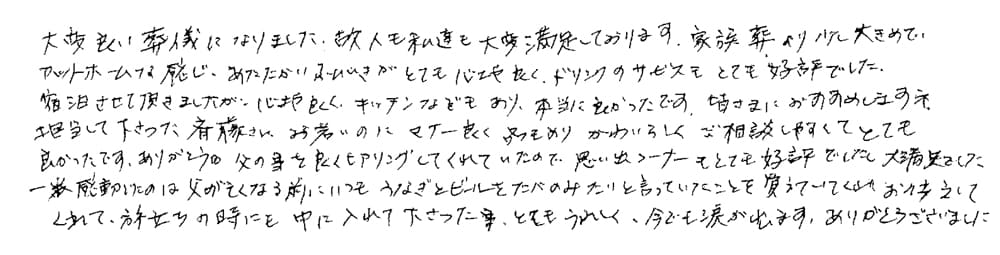 大変良い葬儀になりました。故人も私達も大変満足しております。家族葬より少し大きめで、
アットホームな感じ、あたたかい ふんいきがとても心地良く、ドリンクのサービスもとても好評でした。
宿泊させて頂きましたが、心地良く、キッチンなどもあり、本当に良かったです。皆さまにおすすめします
担当して下さった斉藤さん お若いのにマナー良く 品もあり かわいらしくご相談しやすくてとても
良かったです。ありがとう 父の事を良くヒアリングしてくれていたので、思い出コーナーもとても好評でした 大満足でした
一番感動したのは父が亡くなる前にいつもうなぎとビールをたべのみたいと言っていたことを覚えていてくれ お供えして
くれて、旅立ちの時にも中に入れて下さった事、とてもうれしく、今でも涙が出ます。ありがとうございました